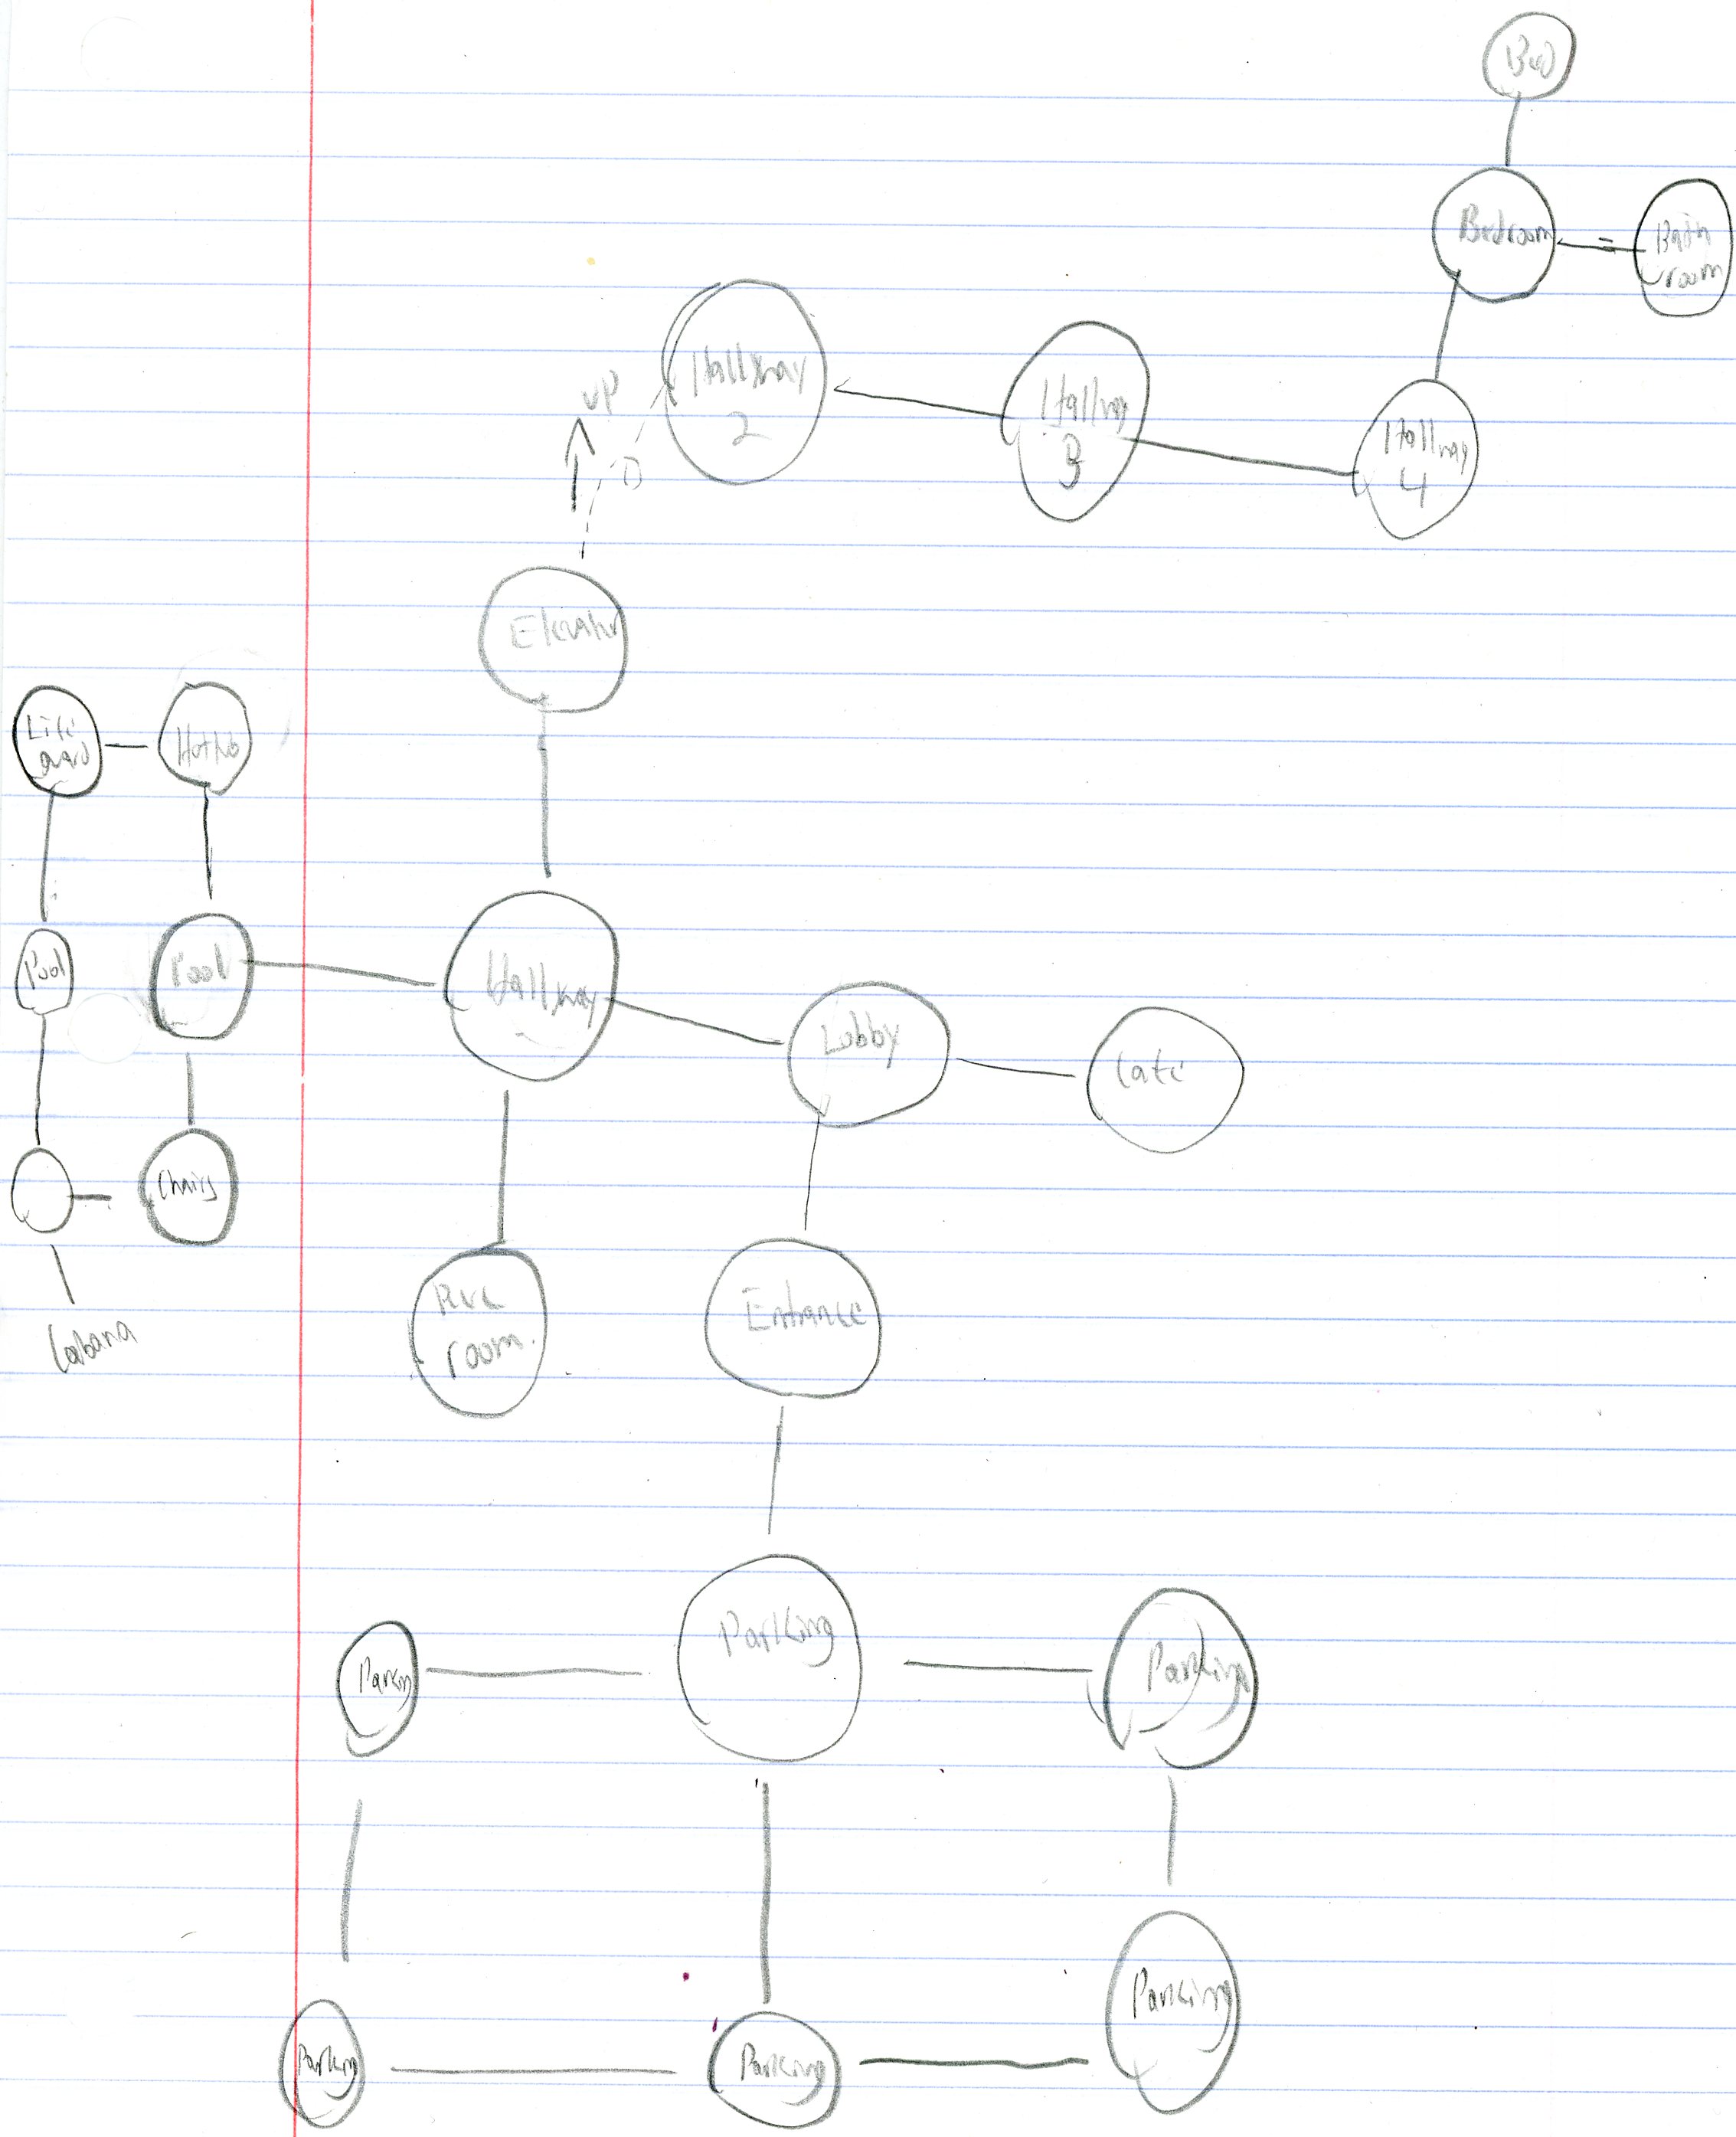 Bed
Bedroom
Bath
room
UP
Hallway
2
Hallway
3
Hallway
4
Elevator
Life
guard
Pool
Pool
Hallway
Lobby
Cafe
Chairs
Rec
room.
Entrance
Cabana
Parking
Parking
Parking
Parking
Parking
Parking